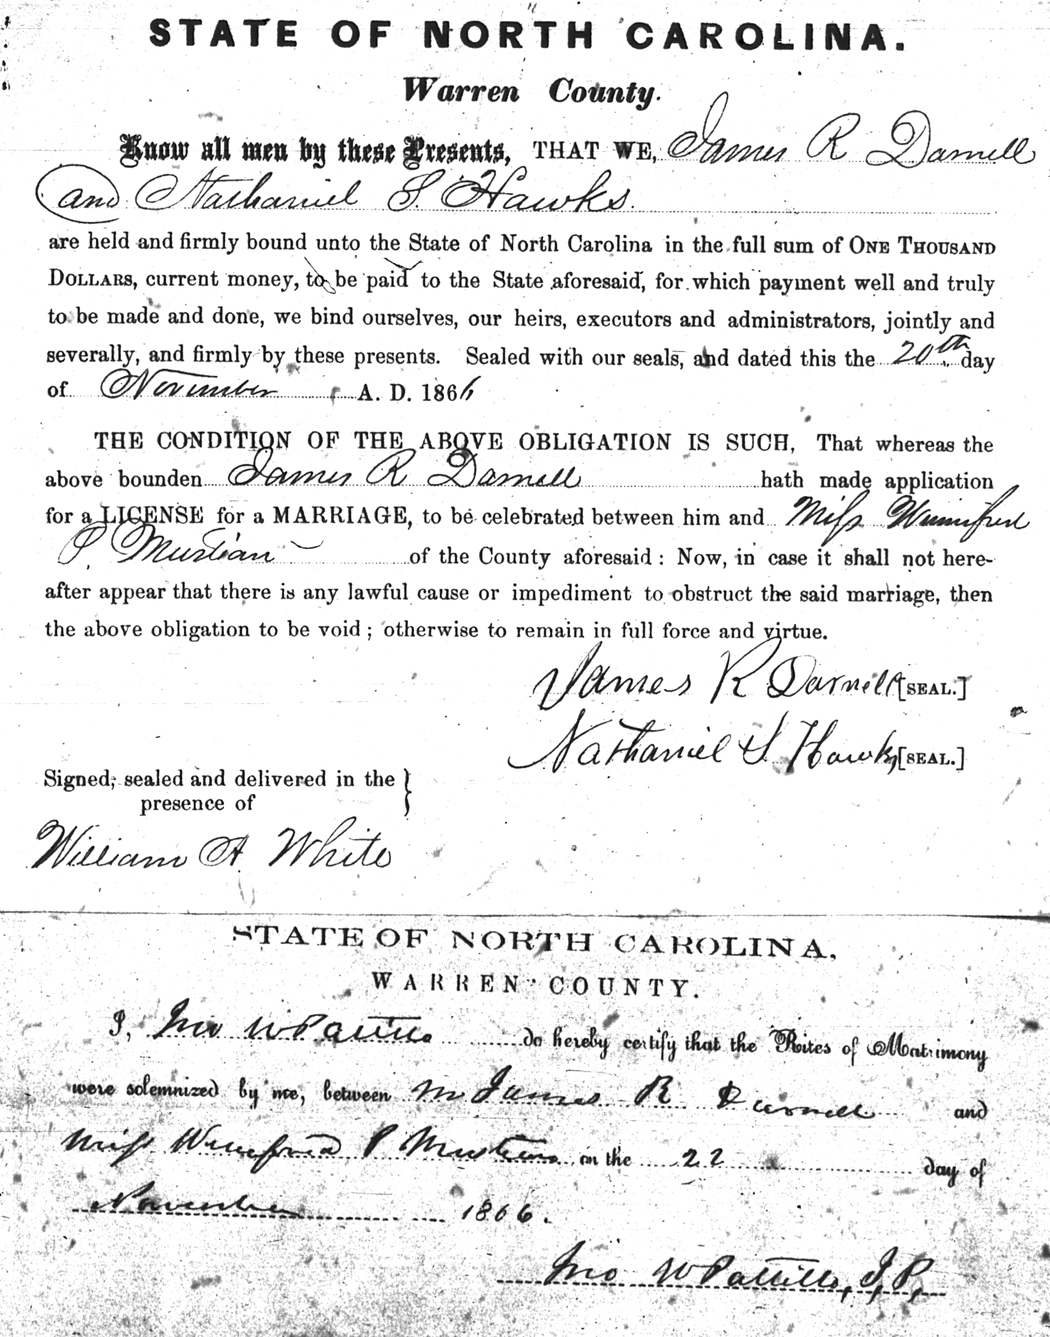 STATE OF NORTH CAROLINA.
Warren County.
Know all men by these Presents, THAT WE, James R Darnell
and Nathaniel S. Hawks.
are held and firmly bound unto the State of North Carolina in the full sum of ONE THOUSAND
DOLLARS, current money, to be paid to the State aforesaid, for which payment well and truly
to be made and done, we bind ourselves, our heirs, executors and administrators, jointly and
severally, and firmly by these presents. Sealed with our seals, and dated this the 20th day
of November A. D. 1866
THE CONDITION OF THE ABOVE OBLIGATION IS SUCH, That whereas the
above bounden James R Darnell hath made application
for a LICENSE for a MARRIAGE, to be celebrated between him and Miss Winnifred
P. Mustian of the County aforesaid : Now, in case it shall not here-
after appear that there is any lawful cause or impediment to obstruct the said marriage, then
the above obligation to be void ; otherwise to remain in full force and virtue.
James R Darnell [SEAL.]
Nathaniel S. Hawks [SEAL.]
Signed, sealed and delivered in the
presence of
William A White
STATE OF NORTH CAROLINA,
WARREN COUNTY.
I, Jno W Pattillo do hereby certify that the Rites of Matrimony
were solemnized by me, between Mr James R. Darnell and
Miss Winefred P Mustian on the 22 day of
November 1866.
Jno W Pattillo, J, P,